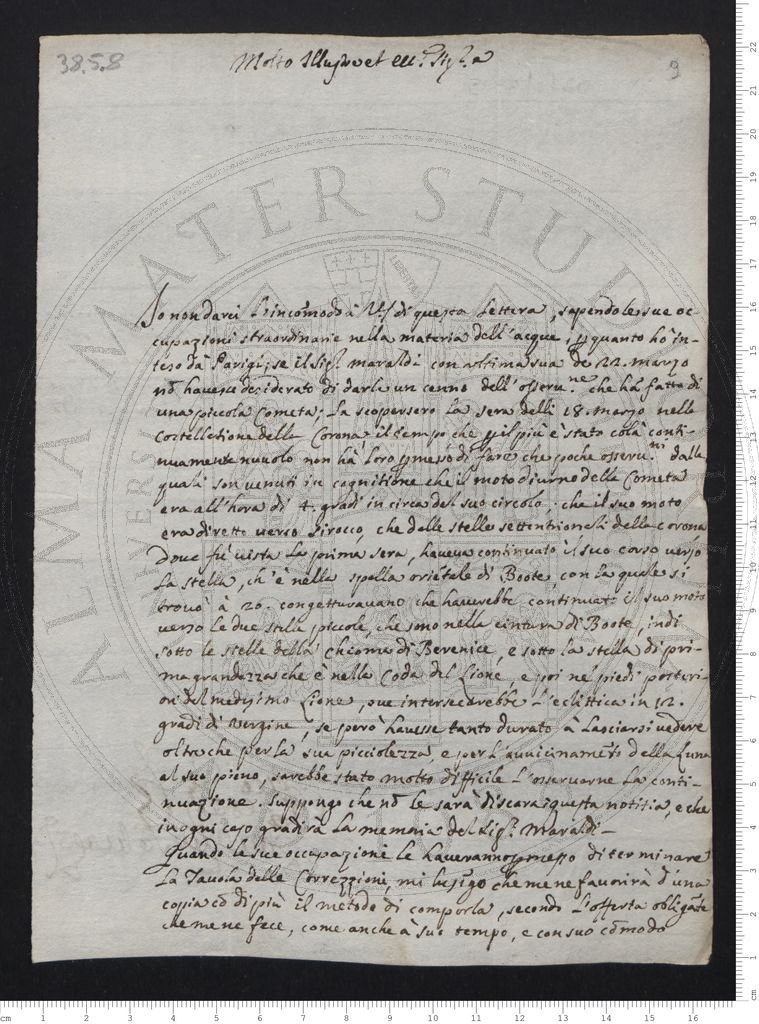 38.5.8
9
Molto Illustre et ecc.e Sig.r
Io non darei l'incomodo à VS di questa lettera, sapendo le sue oc-
cupazioni straordinarie nella materia dell'acque, p quanto hò in-
teso dà Parigi, se il sig.r maraldi con ultima sua de 22. marzo
nõ havesse desiderato di darle un cenno dell'osseru.ne che hà fatta di
una piccola Cometa; La scopersero la sera delli 18. marzo nella
Costellatione della Corona il tempo che p il più è stato colà conti-
nuamente nuvolo non hà loro pmesso di fare che poche osseru.ni dalle
quali son venuti in cognitione che il moto diurno della Cometa
era all'hora di 4. gradi in circa del suo circolo, che il suo moto
era diretto verso sirocco, che dalle stelle settentrionali della corona
Dove fù vista la prima sera, haveva continuato il suo corso verso
La stella, ch'è nella spalla oriẽtale di Boote, con la quale si
trovò à 20. congetturavano che haverebbe continuato il suo moto
verso le due stelle piccole, che sono nella cintura di Boote, indi
sotto le stelle della chioma di Berenice, e sotto la stella di pri-
ma grandezza che è nella Coda del Lione, e poi ne i piedi posteri-
ori del medesimo Lione, ove intersecarebbe l'eclittica in 12.
gradi di Vergine, se però havesse tanto durato à lasciarsi vedere
oltre che per la sua picciolezza, e per l'avvicinamẽto della Luna
al suo pieno, sarebbe stato molto difficile l'osservarne la conti-
nuazione. Suppongo che nõ le sarà discara questa notitia, e che
in ogni caso gradirà la memoria del Sig.r Maraldi –
Quando le sue occupazioni le haveranno pmesso di terminare
La Tavola delle Correzzioni, mi lusigo che me ne favorirà d'una
copia cõ di più il metodo di comporla, secondo l'offerta obligãte
che me ne fece, come anche à suo tempo, e con suo cõmodo
ALMA MATER STUDIORUM